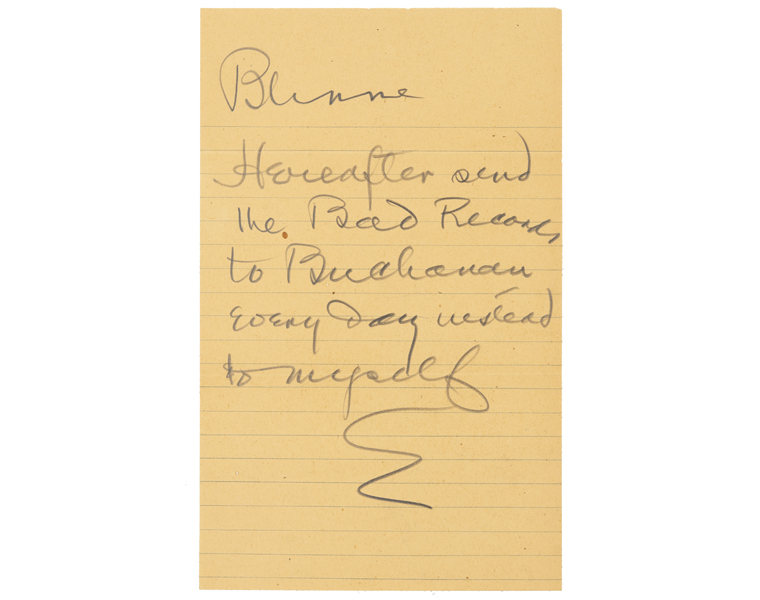 Blinne
Hereafter send
the Bad Records
to Buchanan
every day instead
to myself
E